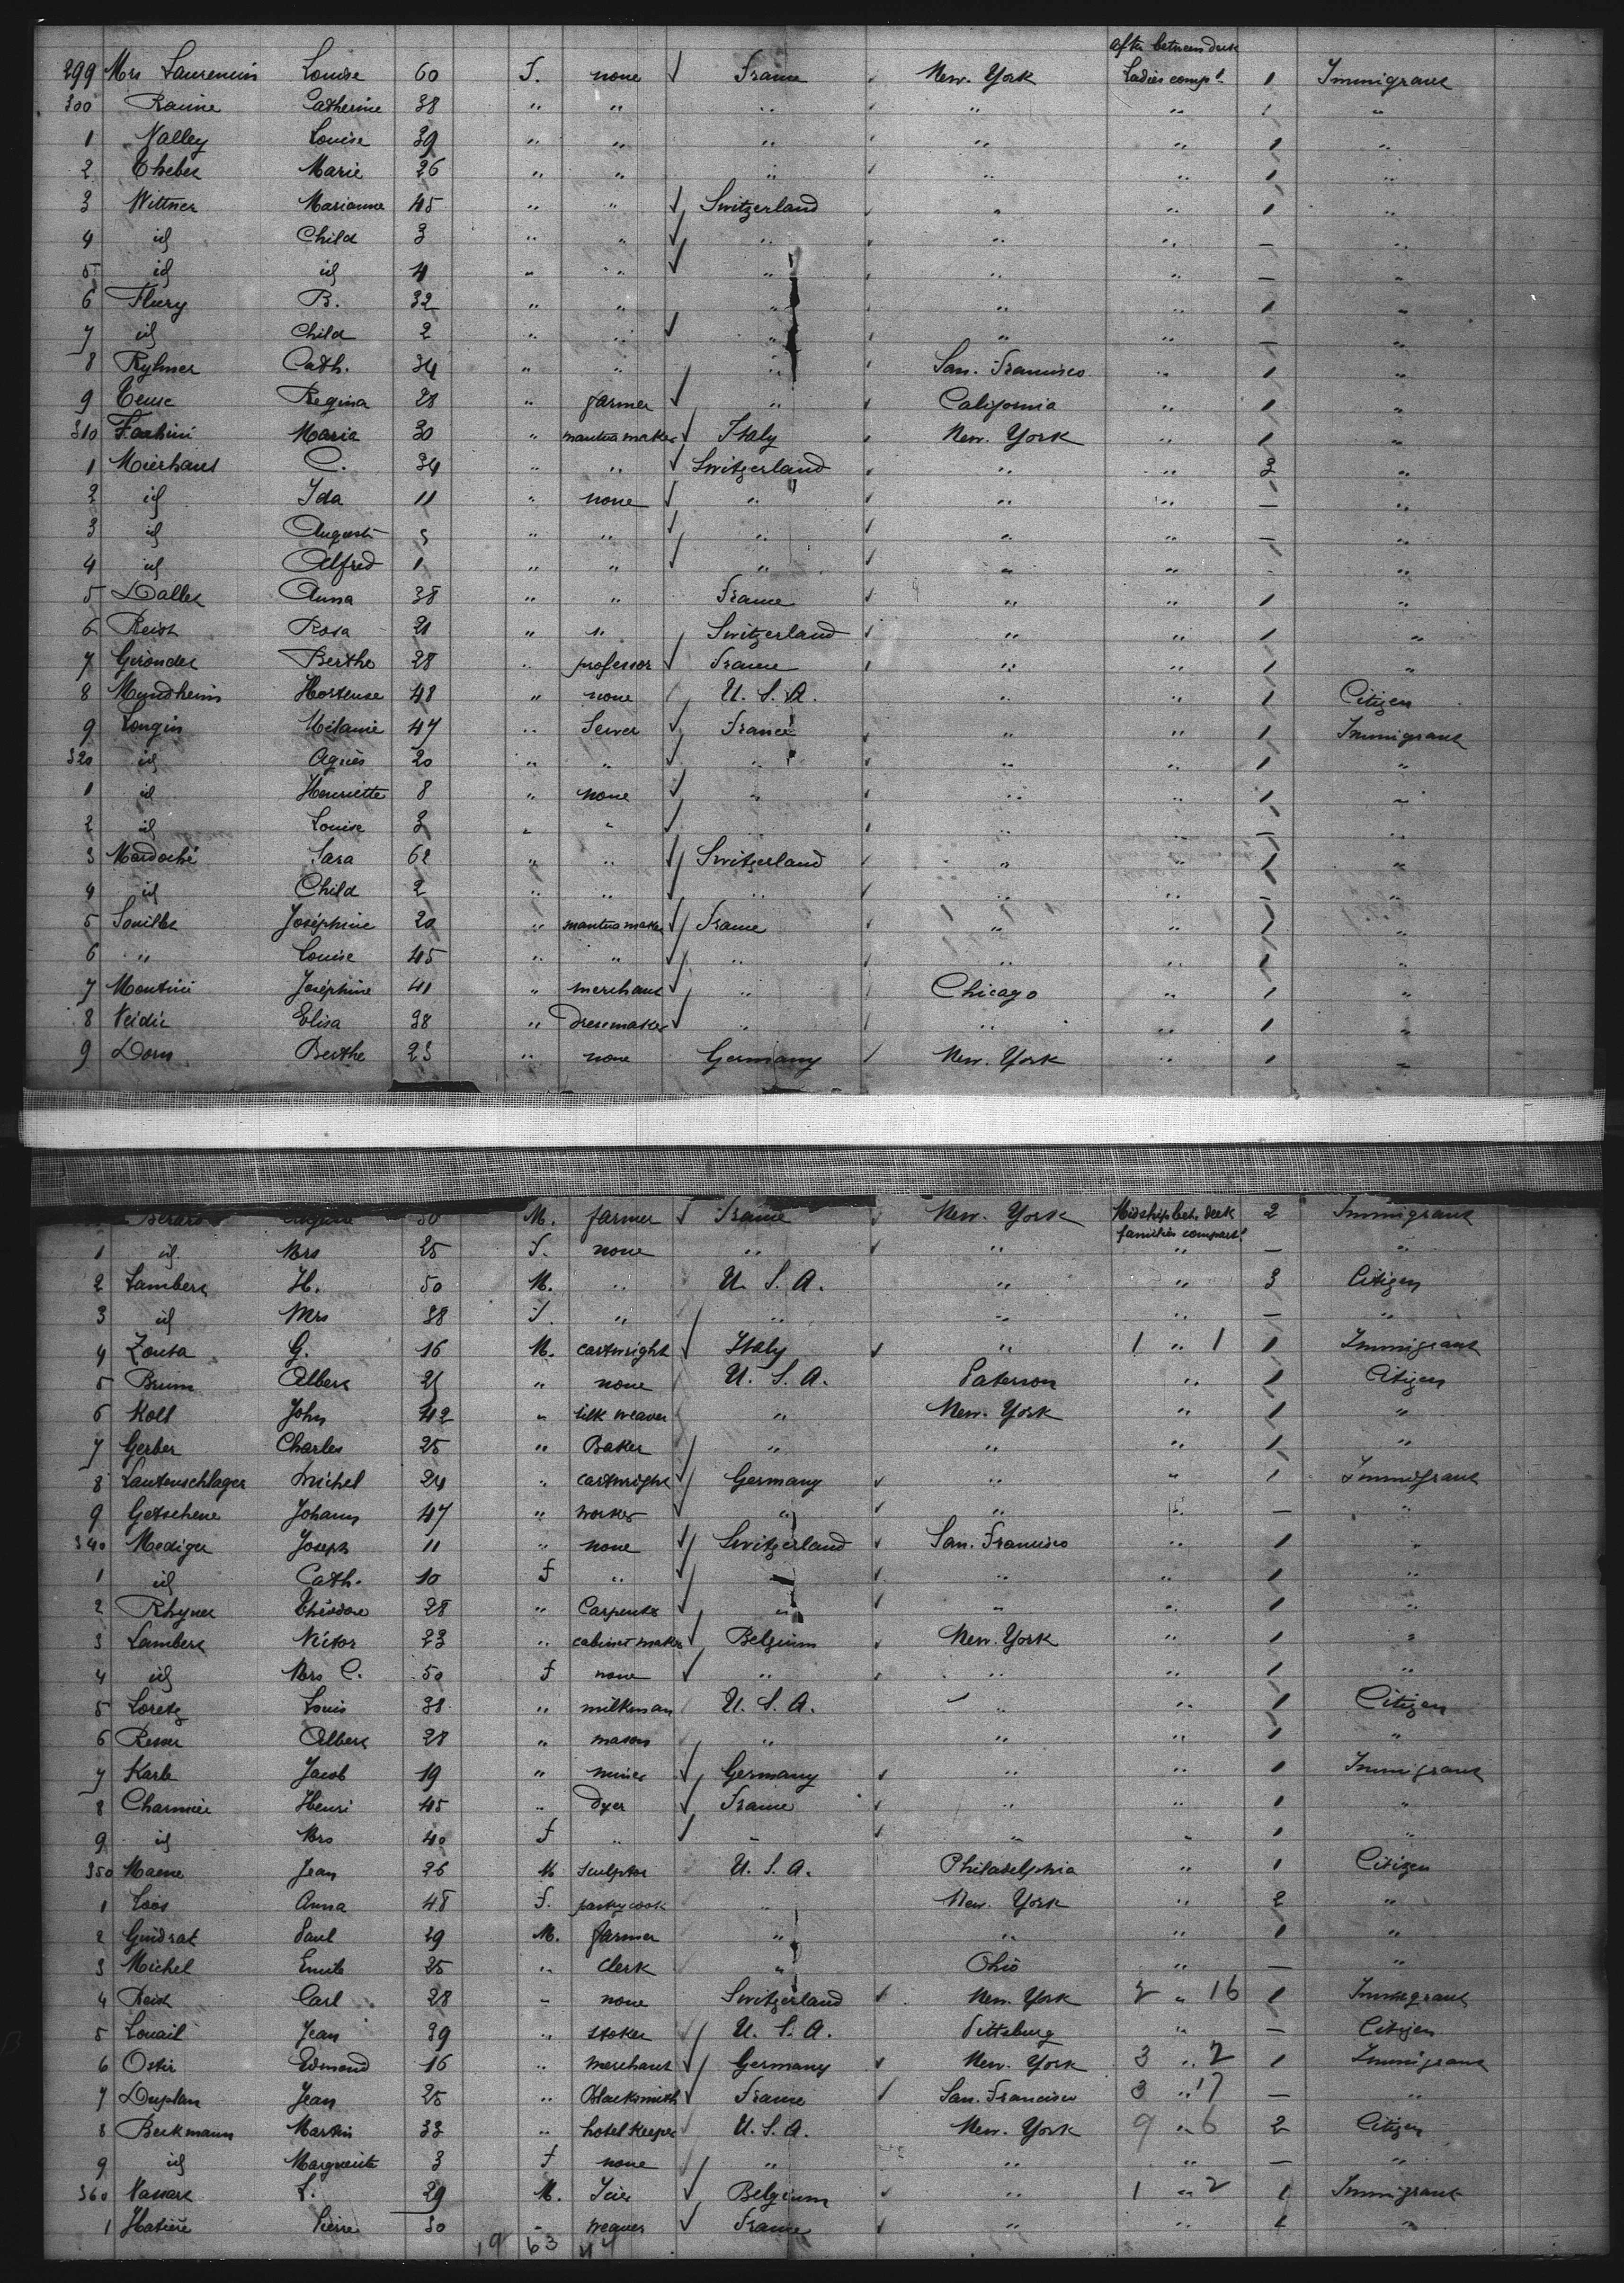 Aft between deck
299 Mrs Laurencin Louise 60 F. none ✓ France New. York Ladies compt. 1 Immigrant
300 Racine Catherine 38 " " " " " 1 "
1 Valley Louise 39 " " " " " 1 "
2 Marie 26 " " " " " 1 "
3 Wittner Marianne 45 " " ✓ Switzerland " " 1 "
4 id Child 3 " " ✓ " " " — "
5 id id 4 " " ✓ " " " — "
6 Flury B. 32 " " " " " 1 "
7 id Child 2 " " ✓ " " " — "
8 Ryhner Cath. 34 " " " San. Francisco " 1 "
9 Regina 28 " farmer ✓ " California " 1 "
310 Maria 30 " mantua maker ✓ Italy New. York " 1 "
1 Meierhans C. 34 " " ✓ Switzerland " " 3 "
2 id Ida 11 " none ✓ " " " — "
3 id August 5 " " ✓ " " " — "
4 id Alfred 1 " " ✓ " " " "
5 Daller Anna 38 " " France " " 1 "
6 Reist Rosa 21 " " Switzerland " " 1 "
7 Girondel Berthe 28 " professor ✓ France " " 1 "
8 Mundheim Hortense 48 " none U. S. A. " " 1 Citizen
9 Longin Mélanie 47 " Sewer ✓ France " " 1 Immigrant
320 id Agnès 20 " " ✓ " " " 1 "
1 id Henriette 8 " none ✓ " " " 1 "
2 id Louise 3 " " ✓ " " " — "
3 Mardoché Sara 62 " " ✓ Switzerland " " 1 "
4 id Child 2 " " ✓ " " " — "
5 Joséphine 20 " mantua maker ✓ France " " 1 "
6 " Louise 45 " " ✓ " " " 1 "
7 Montini Joséphine 41 " merchant ✓ " Chicago " 1 "
8 Elisa 38 " Dressmaker ✓ " " " 1 "
9 Dorn Berthe 23 " none Germany New. York " 1 "
Berard 30 M. farmer ✓ France New. York Midship bet. deck 2 Immigrant
families compart.
1 id Mrs 25 F. none " " " — "
2 Lambert H. 50 M. " U. S. A. " " 3 Citizen
3 id Mrs 38 F. " " " " — "
4 Zonta G. 16 M. cartwright ✓ Italy " 1 " 1 1 Immigrant
5 Brum Albert 21 " none U. S. A. Paterson " 1 Citizen
6 Kolb John 42 " silk weaver " New. York " 1 "
7 Gerber Charles 25 " Baker " " " 1 "
8 Lautenschlager Michel 24 " cartwright ✓ Germany " " 1 Immigrant
9 Getschene Johann 47 " worker ✓ " " " — "
340 Mediger Joseph 11 " none ✓ Switzerland San. Francisco " 1 "
1 id Cath. 10 f " ✓ " " " 1 "
2 Rhyner Théodore 28 " Carpenter ✓ " " " 1 "
3 Lambert Victor 23 " cabinet maker ✓ Belgium New. York " 1 "
4 id Mrs C. 50 f none ✓ " " " 1 "
5 Loretz Louis 38 " milkman U. S. A. " " 1 Citizen
6 Resser Albert 28 " mason " " " 1 "
7 Karle Jacob 19 " miner ✓ Germany " " 1 Immigrant
8 Charmier Henri 45 " Dyer ✓ France " " 1 "
9 id Mrs 40 f " ✓ " " " 1 "
350 Maene Jean 26 M sculptor U. S. A. Philadelphia " 1 Citizen
1 Loos Anna 48 F. pastry cook " New. York " 2 "
2 Guidrat Paul 29 M. farmer " " " 1 "
3 Michel Emile 25 " Clerk " Ohio " — "
4 Reist Carl 28 " none Switzerland New. York 2 " 16 1 Immigrant
5 Louail Jean 39 " stoker U. S. A. Pittsburg " — Citizen
6 Edmond 16 " merchant ✓ Germany New. York 3 " 2 1 Immigrant
7 Duplan Jean 25 " Blacksmith ✓ France San. Francisco 3 " 17 — "
8 Beckmann Martin 33 " hotel keeper U. S. A. New. York 9 " 6 2 Citizen
9 id Marguerite 3 f none " " " — "
360 L. 29 M. ✓ Belgium " 1 " 2 1 Immigrant
1 Hatière Pierre 30 " weaver ✓ France " " 1 "
19 63 44